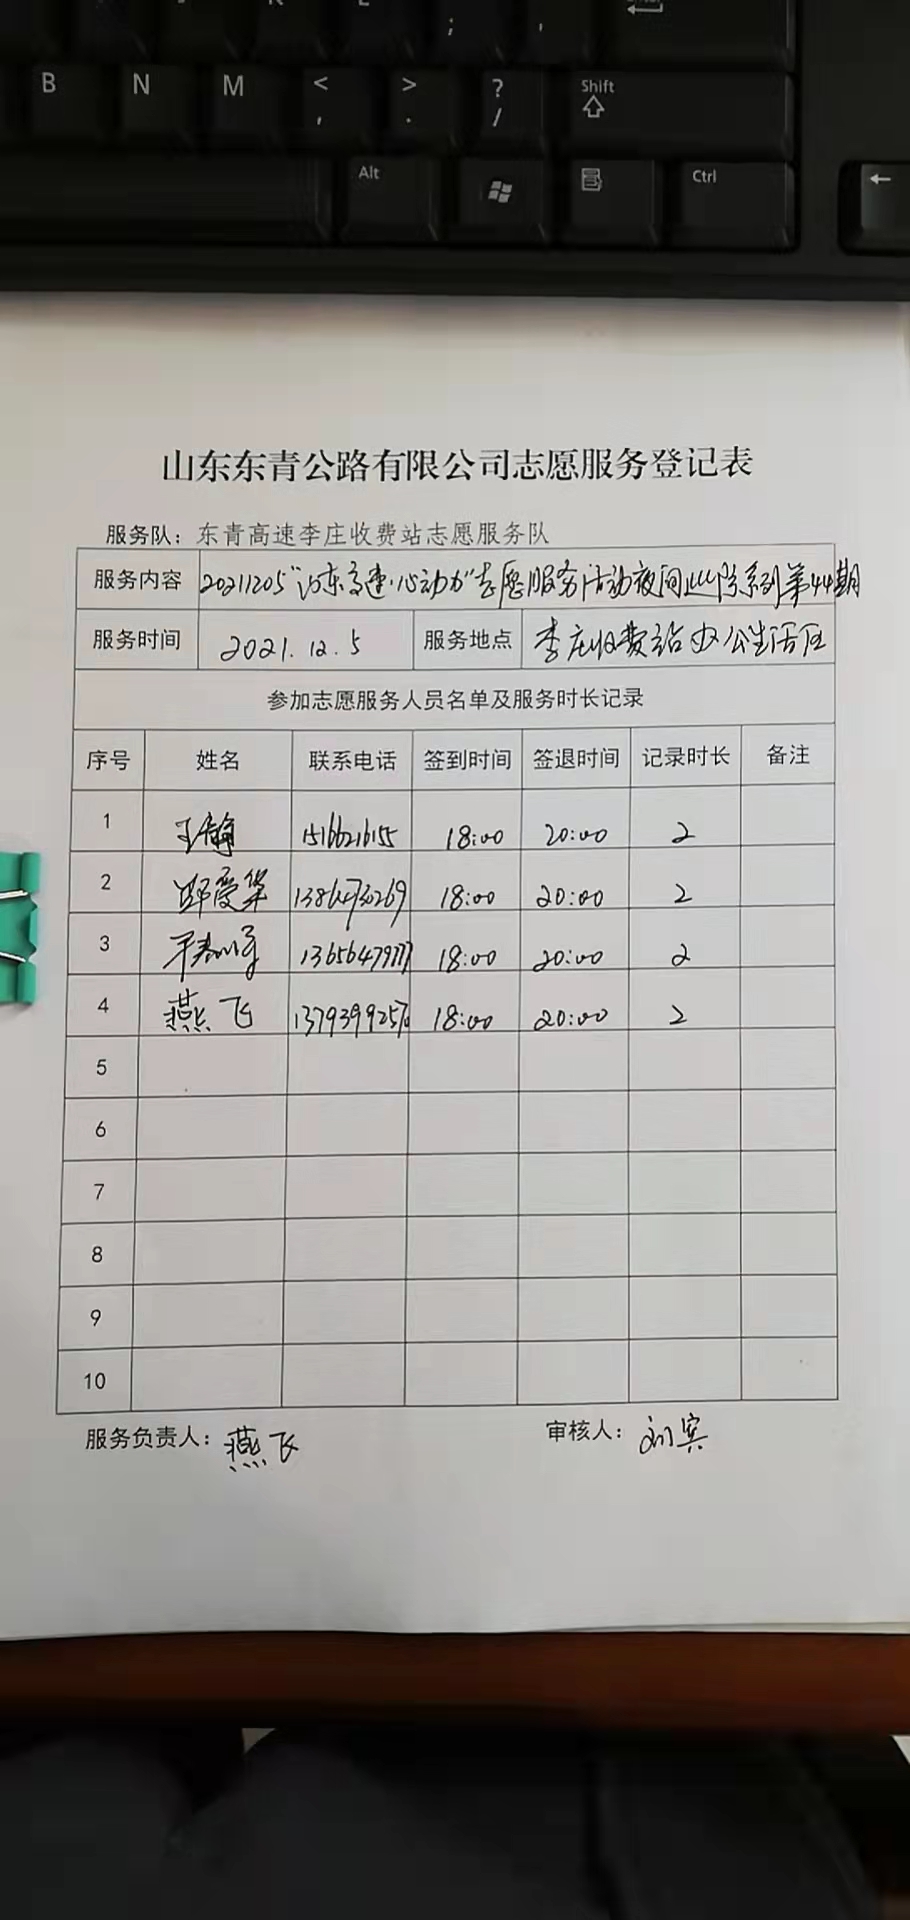 B N M < , > . ? / Shift
Alt Ctrl ←
山东东青公路有限公司志愿服务登记表
服务队：东青高速李庄收费站志愿服务队
服务内容 20211205"山东高速·心动力"志愿服务活动夜间巡防系列第44期
服务时间 2021.12.5 服务地点 李庄收费站办公生活区
参加志愿服务人员名单及服务时长记录
序号 姓名 联系电话 签到时间 签退时间 记录时长 备注
1 王静 18:00 20:00 2
2 13864730269 18:00 20:00 2
3 18:00 20:00 2
4 燕飞 18:00 20:00 2
5
6
7
8
9
10
服务负责人：燕飞 审核人：刘宾